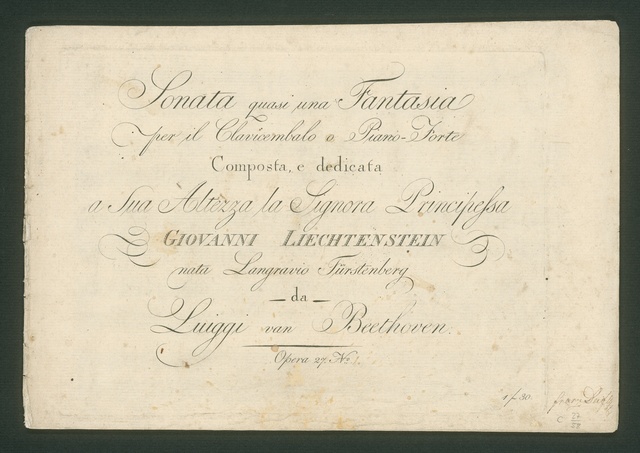 Sonata quasi una Fantasia
per il Clavicembalo o Piano-Forte
Composta, e dedicata
a Sua Altezza la Signora Principeſsa
GIOVANNI LIECHTENSTEIN
nata Langravio Fürstenberg
— da —
Luiggi van Beethoven.
Opera 27 No. 1.
1 f 30